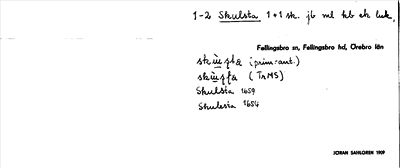 1-2 Skulsta 1+1 sk. jb ml kb ek luk.
Fellingsbro sn, Fellingsbro hd, Örebro län
(prim.-ant.)
(TrMS)
Skulsta 1659
Skulesta 1684
JÖRAN SAHLGREN 1909